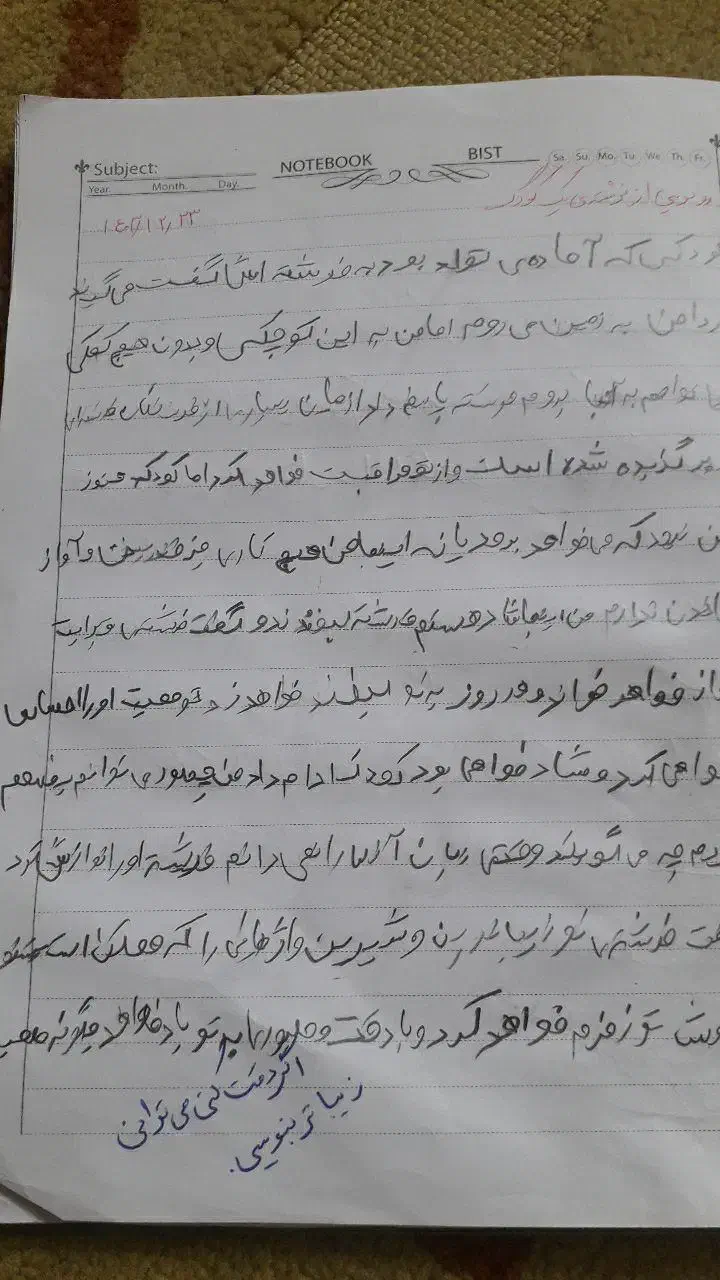 Subject:
NOTEBOOK
BIST
Sa. Su. Mo. Tu. We. Th. Fr.
Year. Month. Day.
رونویسی از نوشته‌ی یک کودک
۱۴۰۲/۱۲/۲۳
کودکی که آماده‌ی تولد بود به فرشته گفت می‌گویند
فردا من به زمین می روم اما من به این کوچکی و بدون هیچ کمکی
بروم فرشته پاسخ داد از میان بسیاری از فرشتگان
برگزیده شده است و از تو مراقبت خواهد کرد اما کودک هنوز
که می‌خواهد برود یا نه اینجا من هیچ کاری جز خندیدن و آواز
خواندن ندارم من اینجا شاد هستم فرشته لبخند زد و گفت فرشته‌ی برایت
آواز خواهد خواند و هر روز به تو لبخند خواهد زد و تو محبت او را احساس
خواهی کرد و شاد خواهی بود کودک ادامه داد من چطور می توانم بفهمم
مردم چه می گویند وقتی زبان آنها را نمی دانم فرشته او را نوازش کرد
گفت فرشته‌ی تو زیباترین و شیرین واژهای را که ممکن است بشنوی
گوش تو زمزمه خواهد کرد و با دقت و صبوری به تو یاد خواهد داد چگونه صحبت
اگر دقت کنی می توانی
زیبا تر بنویسی.